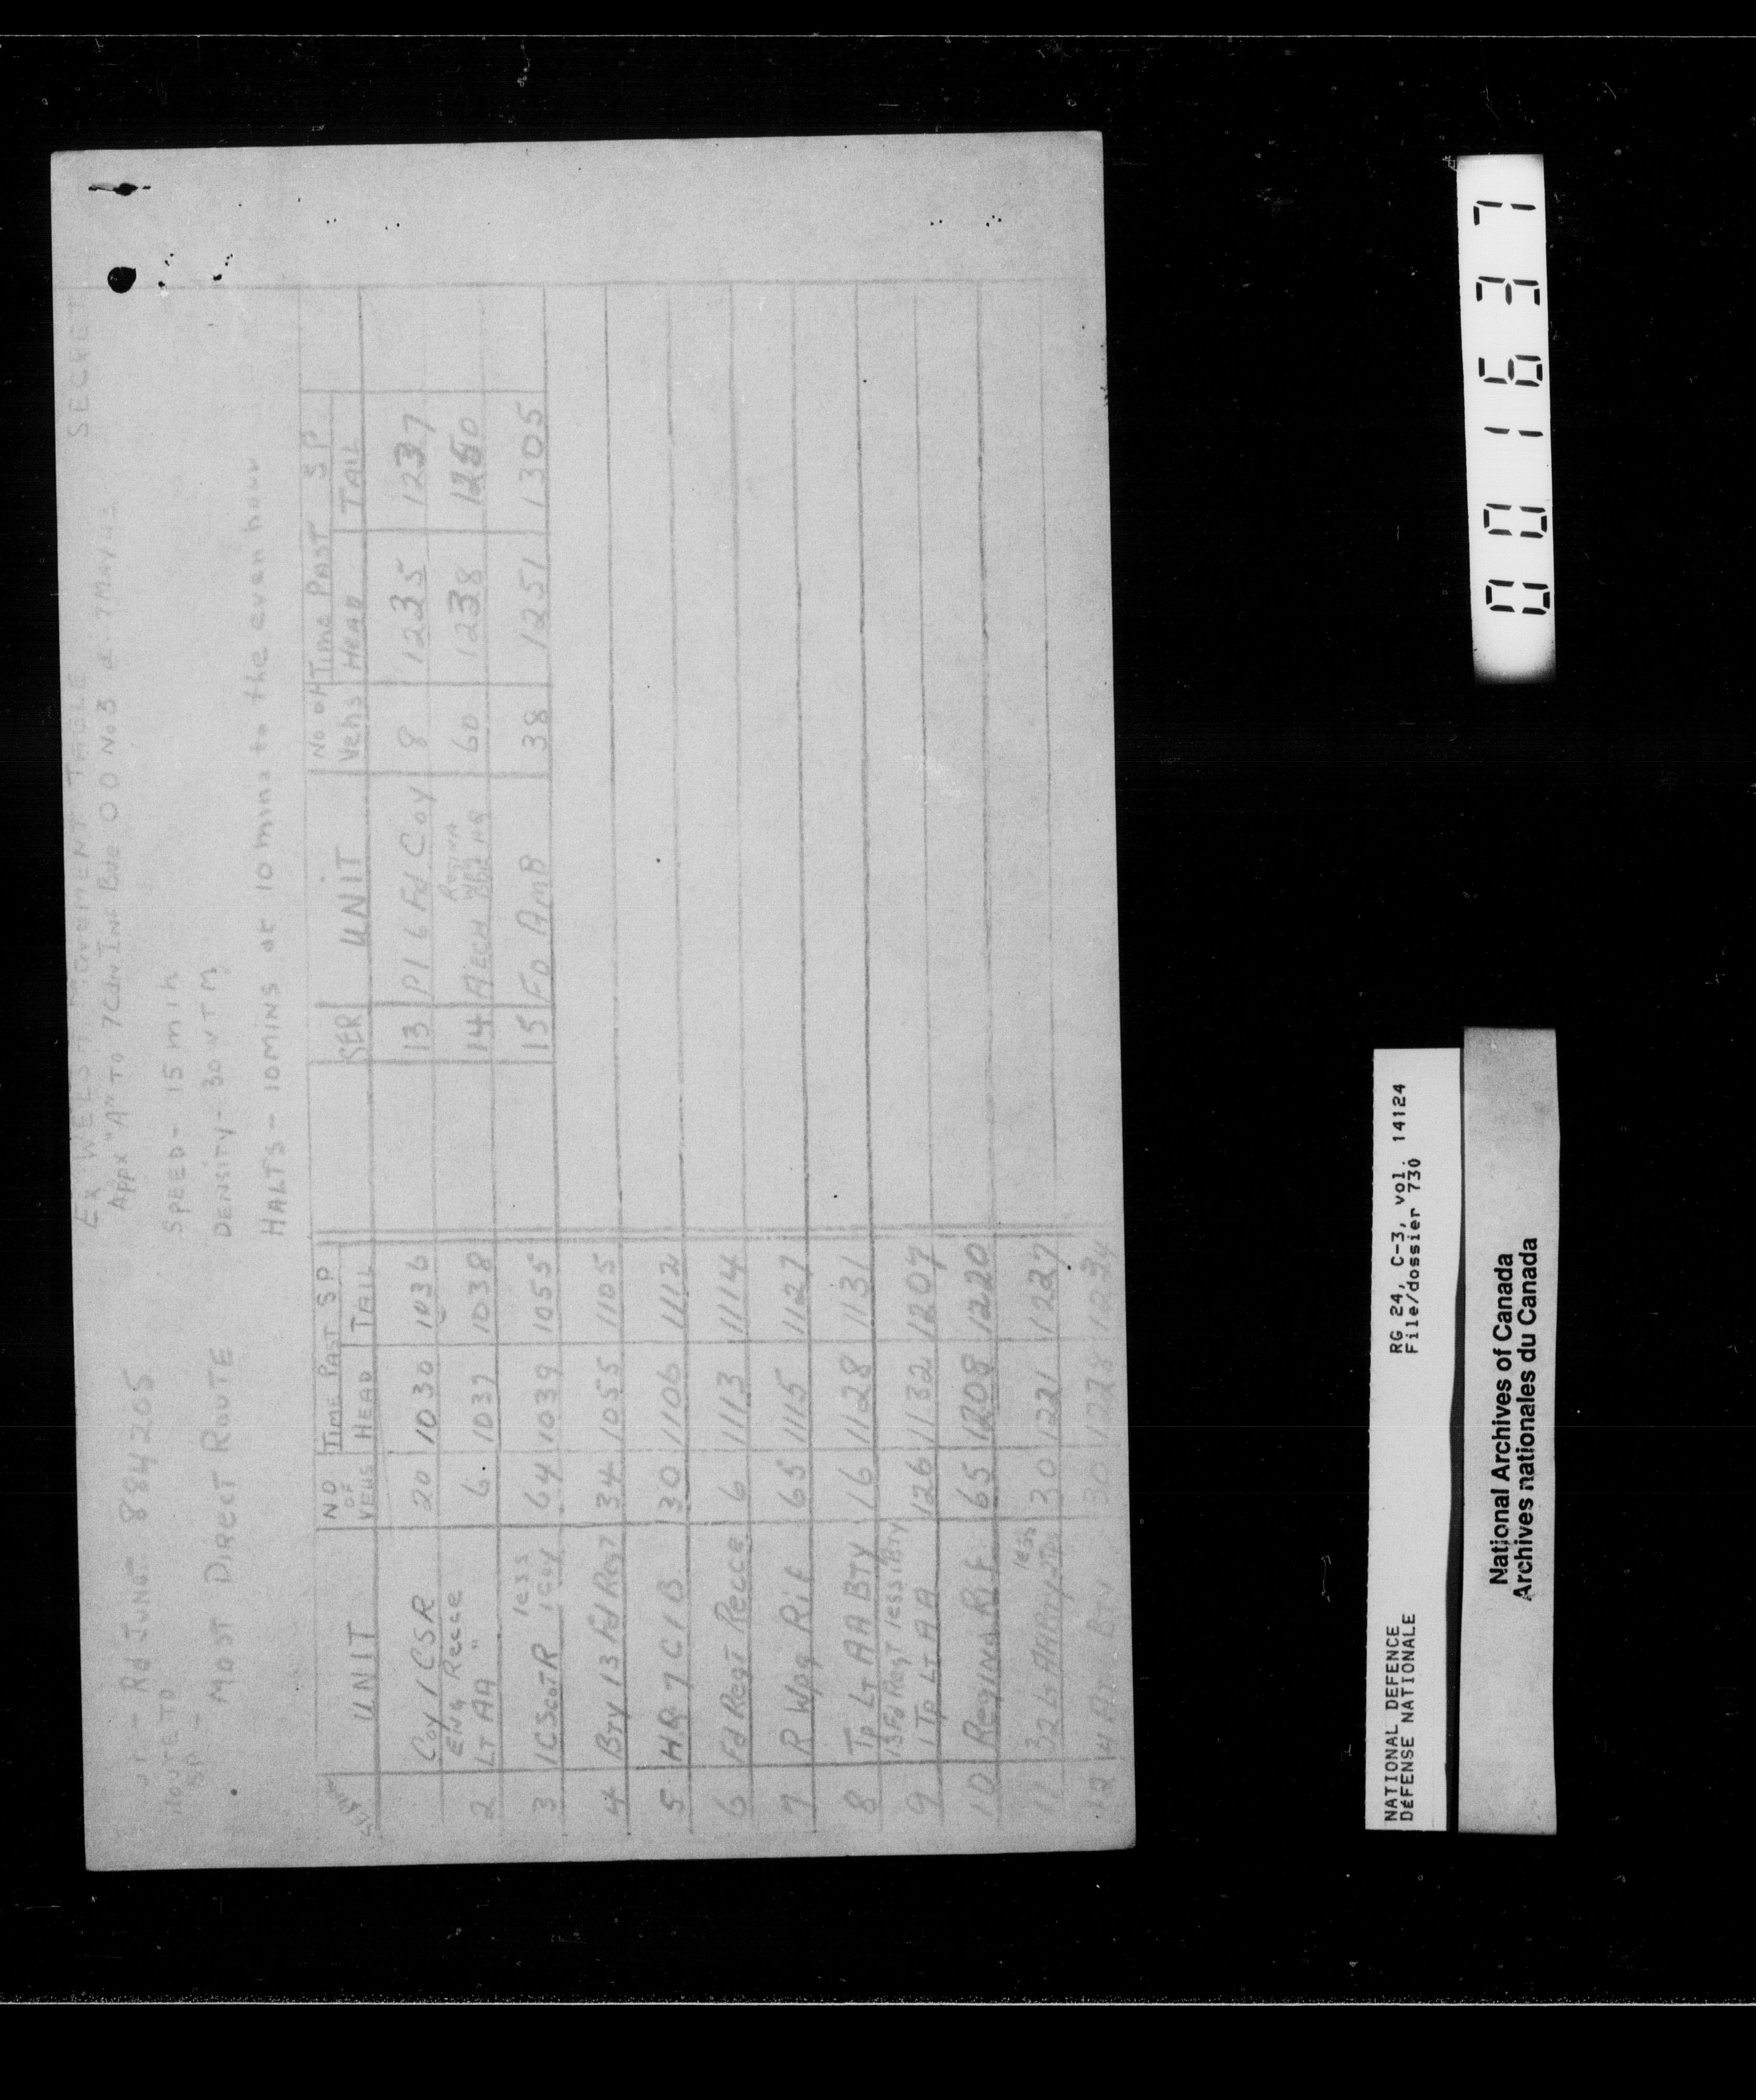 EX WELSH MOVEMENT TABLE SECRET
Appx "A" To 7 Cdn Inf Bde O O No 3 d 7 May 43
Rd Junc 884205 SPEED - 15 mih
ROUTE TO SP - MOST DIRECT ROUTE DENSITY - 30 VTM
HALTS - 10 MINS at 10 mins to the even hour
UNIT NO OF VEHS TIME PAST SP HEAD TAIL SER UNIT No of Vehs Time PAST SP HEAD TAIL
Coy 1 CSR 20 1030 1036 13 Pl 6 Fd Coy 8 1235 1237
2 ENG Recce LT AA " 6 1037 1038 14 A ECH Regina Bde HQ 60 1238 1250
3 1 C Scot R less 1 Coy 64 1039 1055 15 FD AMB 38 1251 1305
4 BTY 13 Fd Regt 34 1055 1105
5 HQ 7 CIB 30 1106 1112
6 Fd Regt Recce 6 1113 1114
7 R Wpg Rif 65 1115 1127
8 Tp LT AA BTY 16 1128 1131
9 13 Fd Regt less 1 BTY 1 Tp LT AA 126 1132 1207
10 Regina Rif 65 1208 1220
11 less 30 1221 1227
12 4 BTY 30 1228 1234
001637
NATIONAL DEFENCE RG 24, C-3, vol. 14124
DÉFENSE NATIONALE File/dossier 730
National Archives of Canada
Archives nationales du Canada